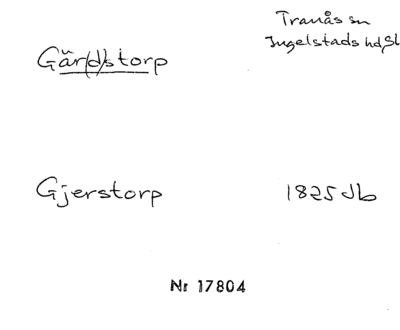 Tranås sn
Ingelstads hd, Sk
Gär(d)storp
Gjerstorp 1825 Jb
Nr 17804